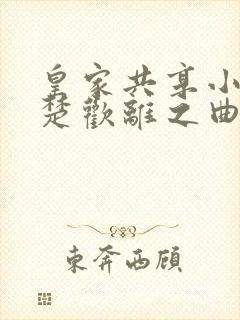 皇家共享小
楚歡離之曲
東奔西顧